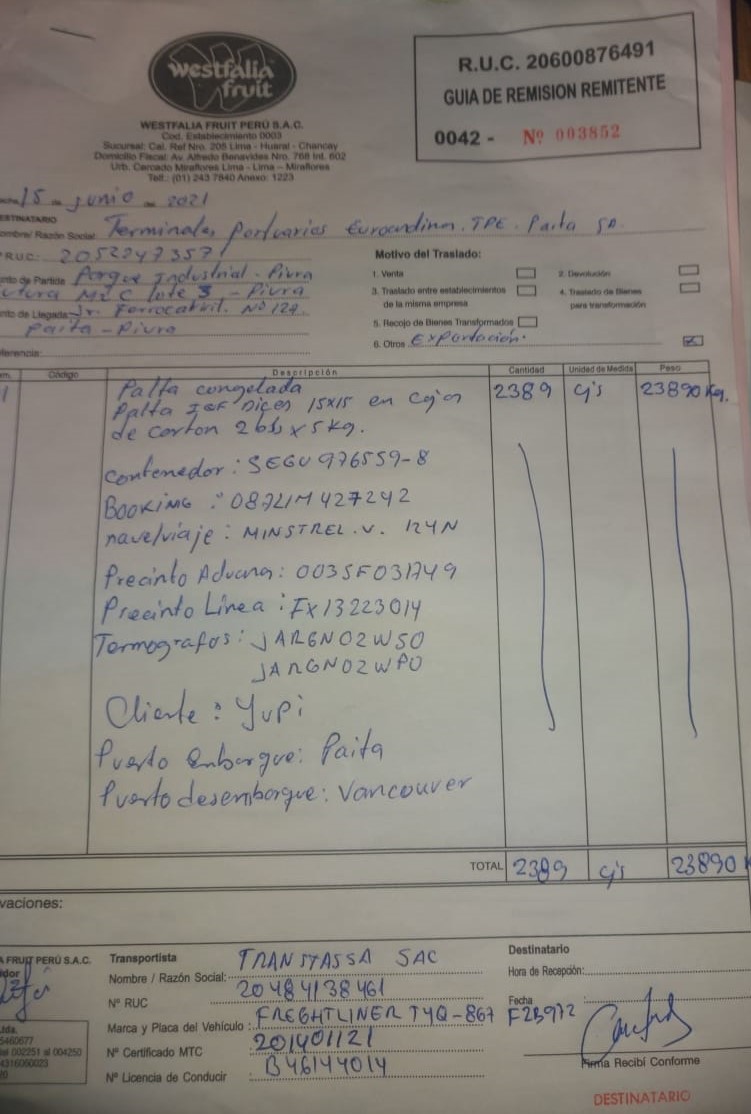 westfalia
fruit
WESTFALIA FRUIT PERÚ S.A.C.
Cod. Establecimiento 0003
Sucursal: Cal. Ref Nro. 208 Lima - Huaral - Chancay
Domicilio Fiscal: Av. Alfredo Benavides Nro. 768 Int. 602
Urb. Cercado Miraflores Lima - Lima - Miraflores
Telf.: (01) 243 7840 Anexo: 1223
R.U.C. 20600876491
GUIA DE REMISION REMITENTE
0042 - Nº 003852
15 de junio de 2021
ESTINATARIO
ombre/ Razón Social: Terminales Portuarios Euroandinos. TPE. Paita SA.
RUC: 20522473571
nto de Partida Parque Industrial - Piura
Futura Mz C lote 3 - Piura
nto de Llegada: Jr. Ferrocarril. Nº 127.
Paita - Piura
ferencia:
Motivo del Traslado:
1. Venta
2. Devolución
3. Traslado entre establecimientos de la misma empresa
4. Traslado de Bienes para transformación
5. Recojo de Bienes Transformados
6. Otros Exportación.
em. Código Descripción Cantidad Unidad de Medida Peso
1 Palta congelada 2389 cj's 23890 Kg.
Palta IQF Dices 15x15 en cajas
de carton 2 bls x 5 kg.
Contenedor: SEGU 976559-8
BOOKING: 0872IM427242
nave/viaje: MINSTREL. V. 124N
Precinto Aduana: 003SF031749
Precinto Línea: FX13223014
Termografos: JAR6N02WSO
JAR6N02WPO
Cliente: Yupi
Puerto Embarque: Paita
Puerto desembarque: Vancouver
TOTAL 2389 cj's 23890 K
vaciones:
A FRUIT PERÚ S.A.C.
idor
Transportista TRANSTASSA SAC
Nombre / Razón Social:
Nº RUC 20484138461
Marca y Placa del Vehículo: FREGHTLINER T4Q-867 F2B972
Nº Certificado MTC 201401121
Nº Licencia de Conducir B46144014
Destinatario
Hora de Recepción:
Fecha
Firma Recibí Conforme
ltda.
5460677
del 002251 al 004250
4316090023
DESTINATARIO